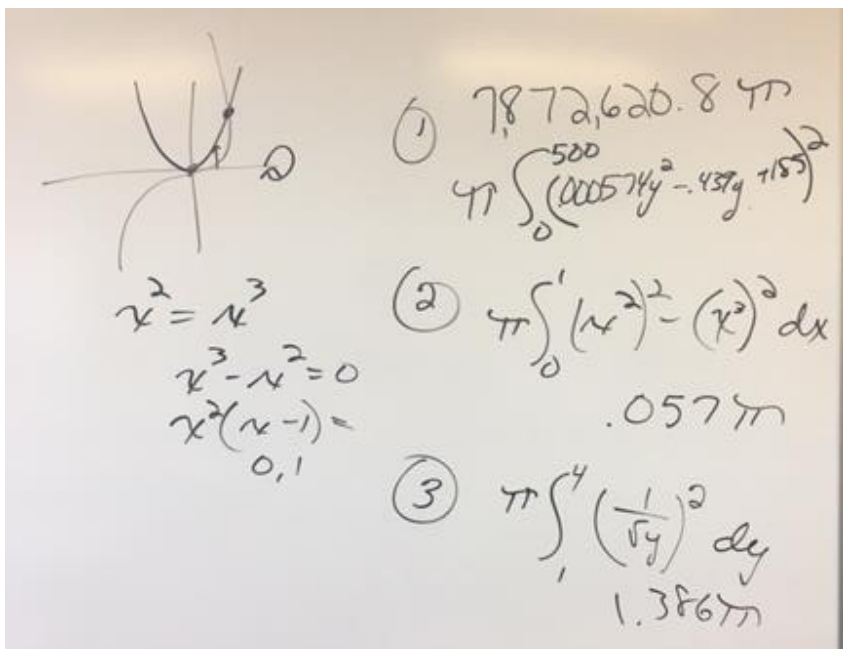 x² = x³
x³ - x² = 0
x²(x - 1) =
0, 1
① 7,872,620.8 π
π ∫₀⁵⁰⁰ (.000574y² - .439y + 185)²
② π ∫₀¹ (x²)² - (x³)² dx
.057π
③ π ∫₁⁴ (1/√y)² dy
1.386π